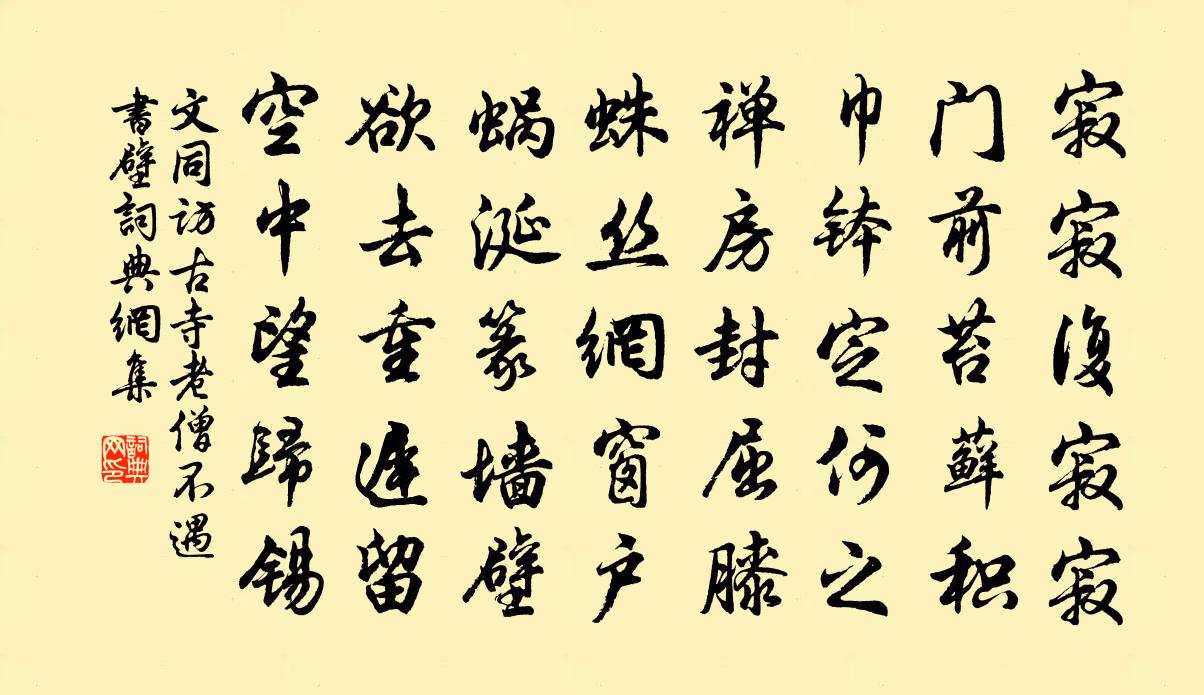 寂寂復寂寂
门前苔藓积
巾钵定何之
禅房封屈膝
蛛丝網窗户
蜗涎篆墙壁
欲去重遅留
空中望歸锡
文同访古寺老僧不遇
書壁詞典網集
詞典网印